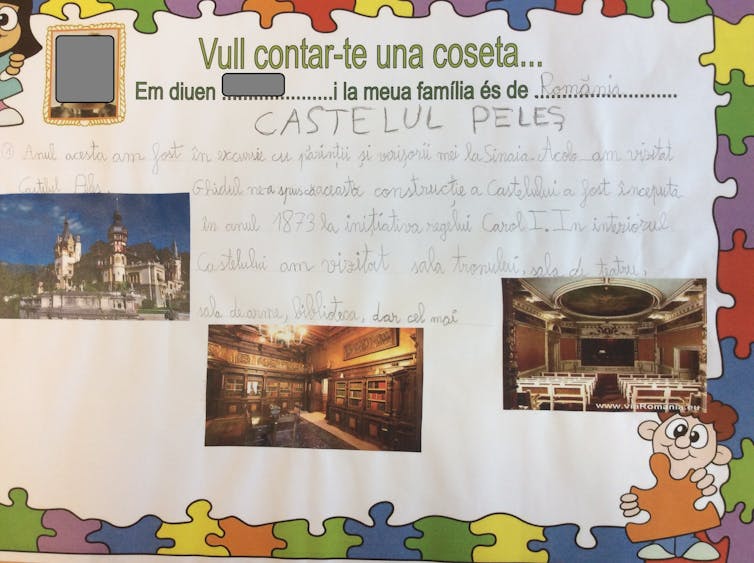 Vull contar-te una coseta...
Em diuen ....................i la meua família és de .România.......................
CASTELUL PELEȘ
Anul acesta am fost în excursie cu părinții și verișorii mei la Sinaia Acolo am vizitat
Castelul Peleș. Ghidul ne-a spus că această construcție a Castelului a fost începută
în anul 1873 la inițiativa regelui Carol I. In interiorul
Castelului am vizitat sala tronului, sala de teatru,
sala de arme, biblioteca, dar cel mai
www.viaRomania.eu